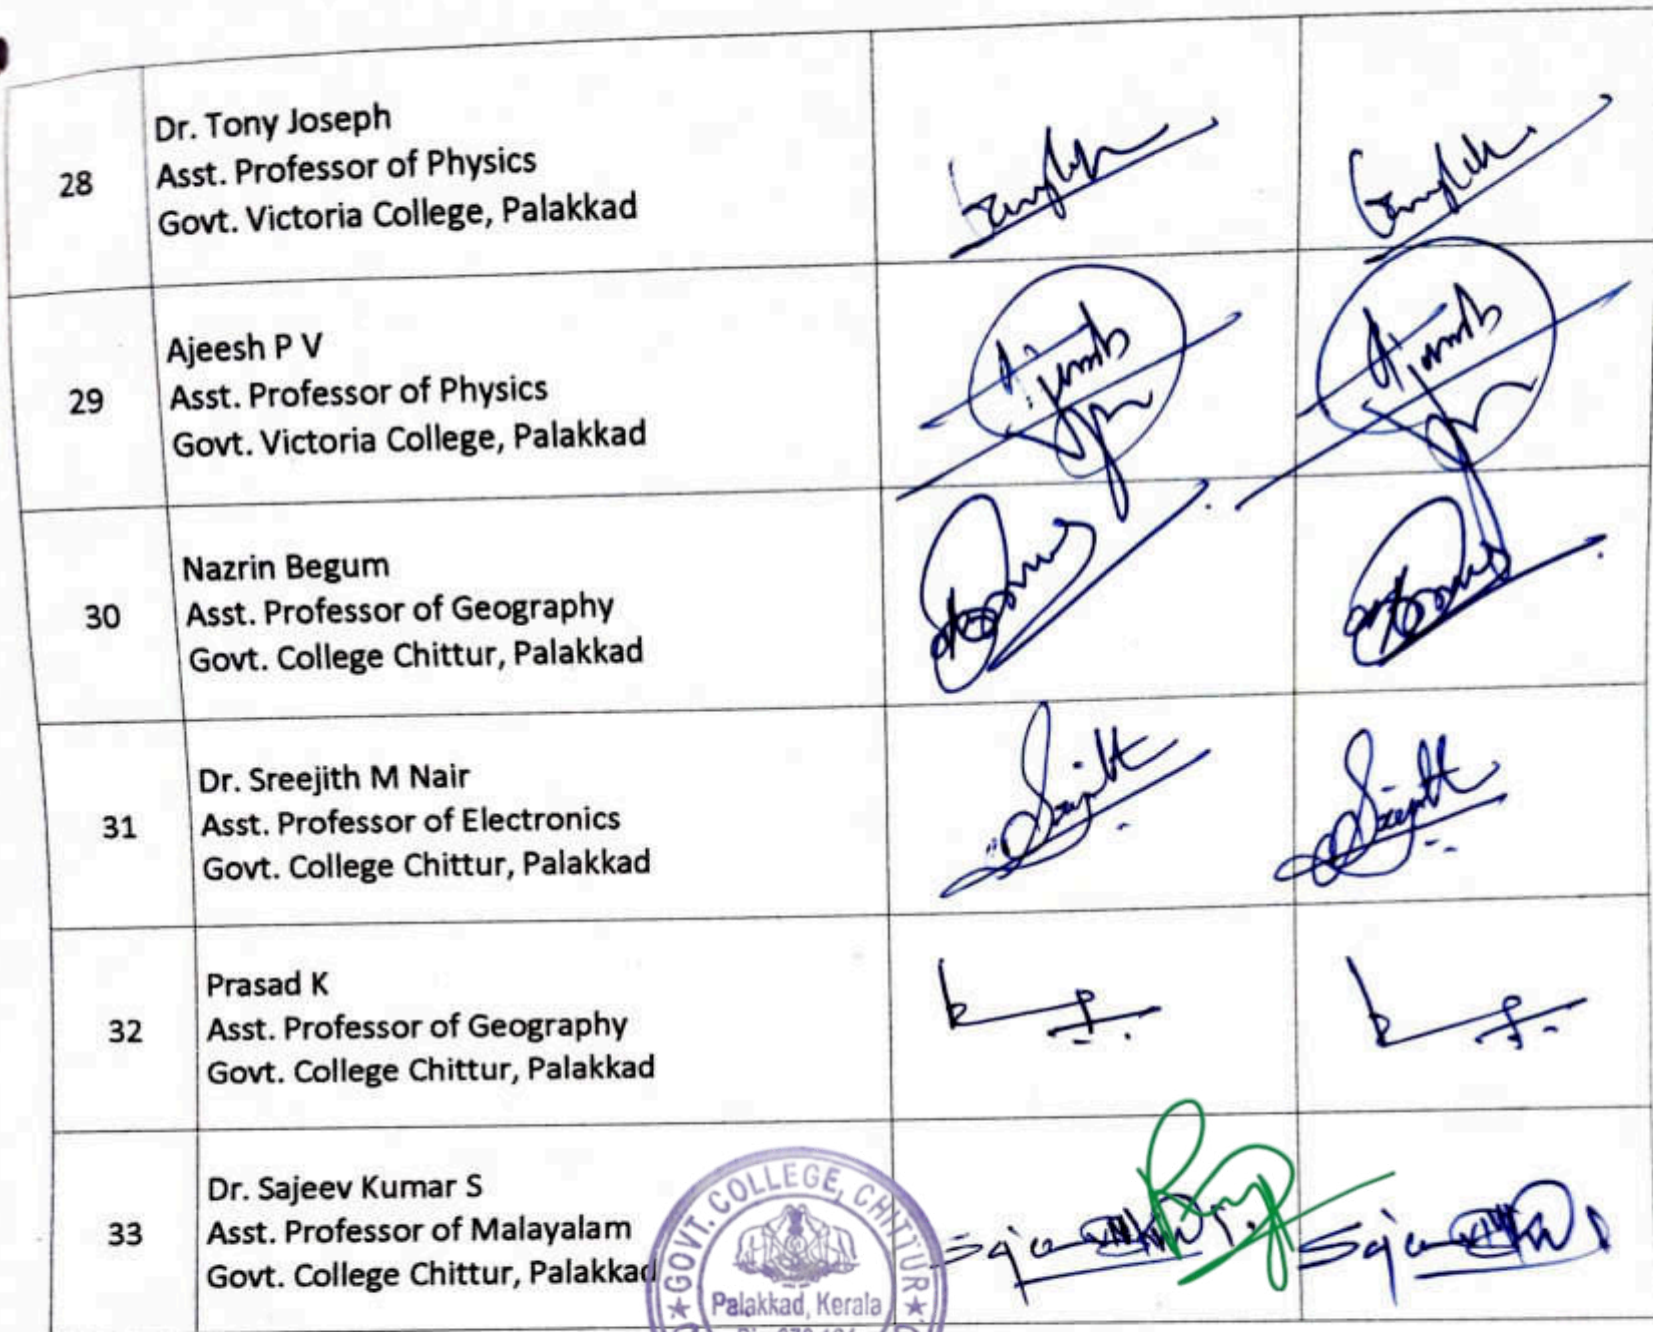 28
Dr. Tony Joseph
Asst. Professor of Physics
Govt. Victoria College, Palakkad
29
Ajeesh P V
Asst. Professor of Physics
Govt. Victoria College, Palakkad
30
Nazrin Begum
Asst. Professor of Geography
Govt. College Chittur, Palakkad
31
Dr. Sreejith M Nair
Asst. Professor of Electronics
Govt. College Chittur, Palakkad
32
Prasad K
Asst. Professor of Geography
Govt. College Chittur, Palakkad
33
Dr. Sajeev Kumar S
Asst. Professor of Malayalam
Govt. College Chittur, Palakkad
GOVT. COLLEGE, CHITTUR
Palakkad, Kerala